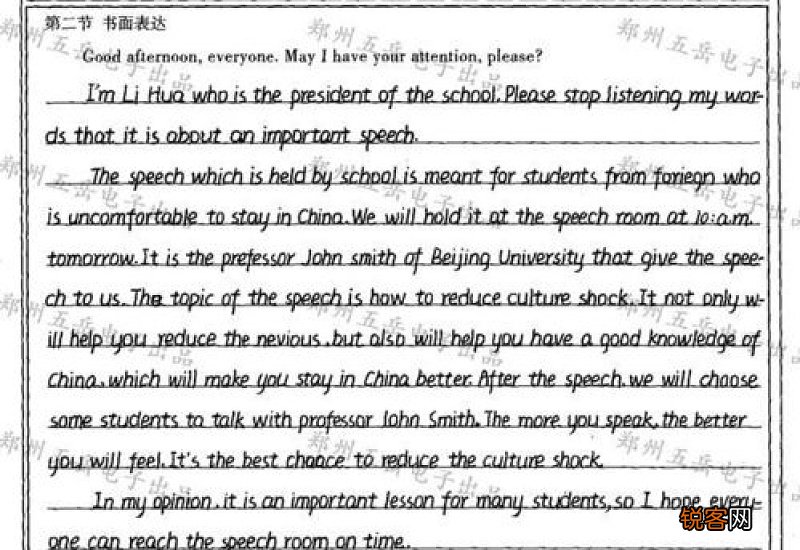 第二节 书面表达
Good afternoon, everyone. May I have your attention, please?
I'm Li Hua who is the president of the school. Please stop listening my wor-
ds that it is about an important speech.
The speech which is held by school is meant for students from foriegn who
is uncomfortable to stay in China. We will hold it at the speech room at 10:a.m.
tomorrow. It is the prefessor John smith of Beijing University that give the spee-
ch to us. The topic of the speech is how to reduce culture shock. It not only w-
ill help you reduce the nevious, but also will help you have a good knowledge of
China, which will make you stay in China better. After the speech, we will choose
some students to talk with professor John Smith. The more you speak, the better
you will feel. It's the best chance to reduce the culture shock.
In my opinion, it is an important lesson for many students, so I hope every-
one can reach the speech room on time.
郑州五岳电子出品
锐客网